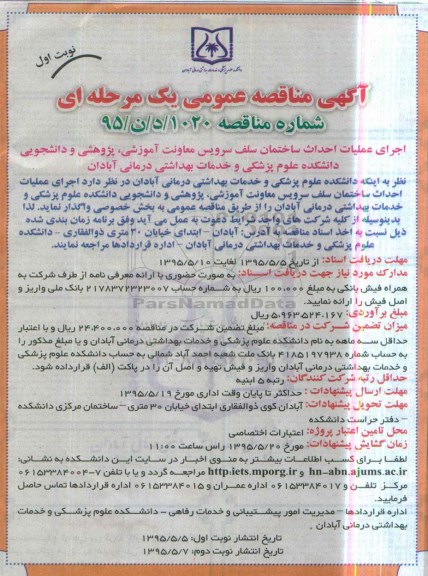 نوبت اول
آگهی مناقصه عمومی یک مرحله ای
شماره مناقصه ۱۰۲۰/د/ن/۹۵
اجرای عملیات احداث ساختمان سلف سرویس معاونت آموزشی، پژوهشی و دانشجویی
دانشکده علوم پزشکی و خدمات بهداشتی درمانی آبادان
نظر به اینکه دانشکده علوم پزشکی و خدمات بهداشتی درمانی آبادان در نظر دارد اجرای عملیات
احداث ساختمان سلف سرویس معاونت آموزشی، پژوهشی و دانشجویی دانشکده علوم پزشکی و
خدمات بهداشتی درمانی آبادان را از طریق مناقصه عمومی به بخش خصوصی واگذار نماید. لذا
بدینوسیله از کلیه شرکت های واجد شرایط دعوت به عمل می آید وفق برنامه زمان بندی شده
ذیل نسبت به اخذ اسناد مناقصه به آدرس: آبادان – ابتدای خیابان ۳۰ متری ذوالفقاری – دانشکده
علوم پزشکی و خدمات بهداشتی درمانی آبادان – اداره قراردادها مراجعه نمایند.
مهلت دریافت اسناد: از تاریخ ۱۳۹۵/۵/۵ لغایت ۱۳۹۵/۵/۱۰
مدارک مورد نیاز جهت دریافت اسناد: به صورت حضوری با ارائه معرفی نامه از طرف شرکت به
همراه فیش بانکی به مبلغ ۱۰۰،۰۰۰ ریال به شماره حساب ۲۱۷۸۳۷۲۳۲۳۰۰۷ بانک ملی واریز و
اصل فیش را ارائه نمایید.
مبلغ برآوردی: ۵،۹۶۳،۵۲۴،۱۶۷ ریال
میزان تضمین شرکت در مناقصه: مبلغ تضمین شرکت در مناقصه ۲۴،۴۰۰،۰۰۰ ریال و با اعتبار
حداقل سه ماهه به نام دانشکده علوم پزشکی و خدمات بهداشتی درمانی آبادان و یا مبلغ مذکور را
به حساب شماره ۴۱۸۵۱۹۷۹۳۸ بانک ملت شعبه احمد آباد شمالی به حساب دانشکده علوم پزشکی
و خدمات بهداشتی درمانی آبادان واریز و فیش تهیه و اصل آن را در پاکت (الف) قرارداده شود.
حداقل رتبه شرکت کنندگان: رتبه ۵ ابنیه
مهلت ارسال پیشنهادات: حداکثر تا پایان وقت اداری مورخ ۱۳۹۵/۵/۱۹
مهلت تحویل پیشنهادات: آبادان کوی ذوالفقاری ابتدای خیابان ۳۰ متری – ساختمان مرکزی دانشکده
– دفتر حراست دانشکده
محل تامین اعتبار پروژه: اعتبارات اختصاصی
زمان گشایش پیشنهادات: مورخ ۱۳۹۵/۵/۲۰ راس ساعت ۱۱:۰۰
لطفا برای کسب اطلاعات بیشتر به منوی اخبار در سایت این دانشکده به نشانی:
hn-abn.ajums.ac.ir و http:iets.mporg.ir مراجعه گردد و یا با تلفن ۷-۰۶۱۵۳۳۸۴۰۰۴
مرکز تلفن و ۰۶۱۵۳۳۸۴۰۱۷ اداره عمران و ۰۶۱۵۳۳۸۴۰۱۵ اداره قراردادها تماس حاصل
فرمایید.
اداره قراردادها – مدیریت امور پیشتیبانی و خدمات رفاهی - دانشکده علوم پزشکی و خدمات
بهداشتی درمانی آبادان
تاریخ انتشار نوبت اول: ۱۳۹۵/۵/۵
تاریخ انتشار نوبت دوم: ۱۳۹۵/۵/۷
ParsNamadData